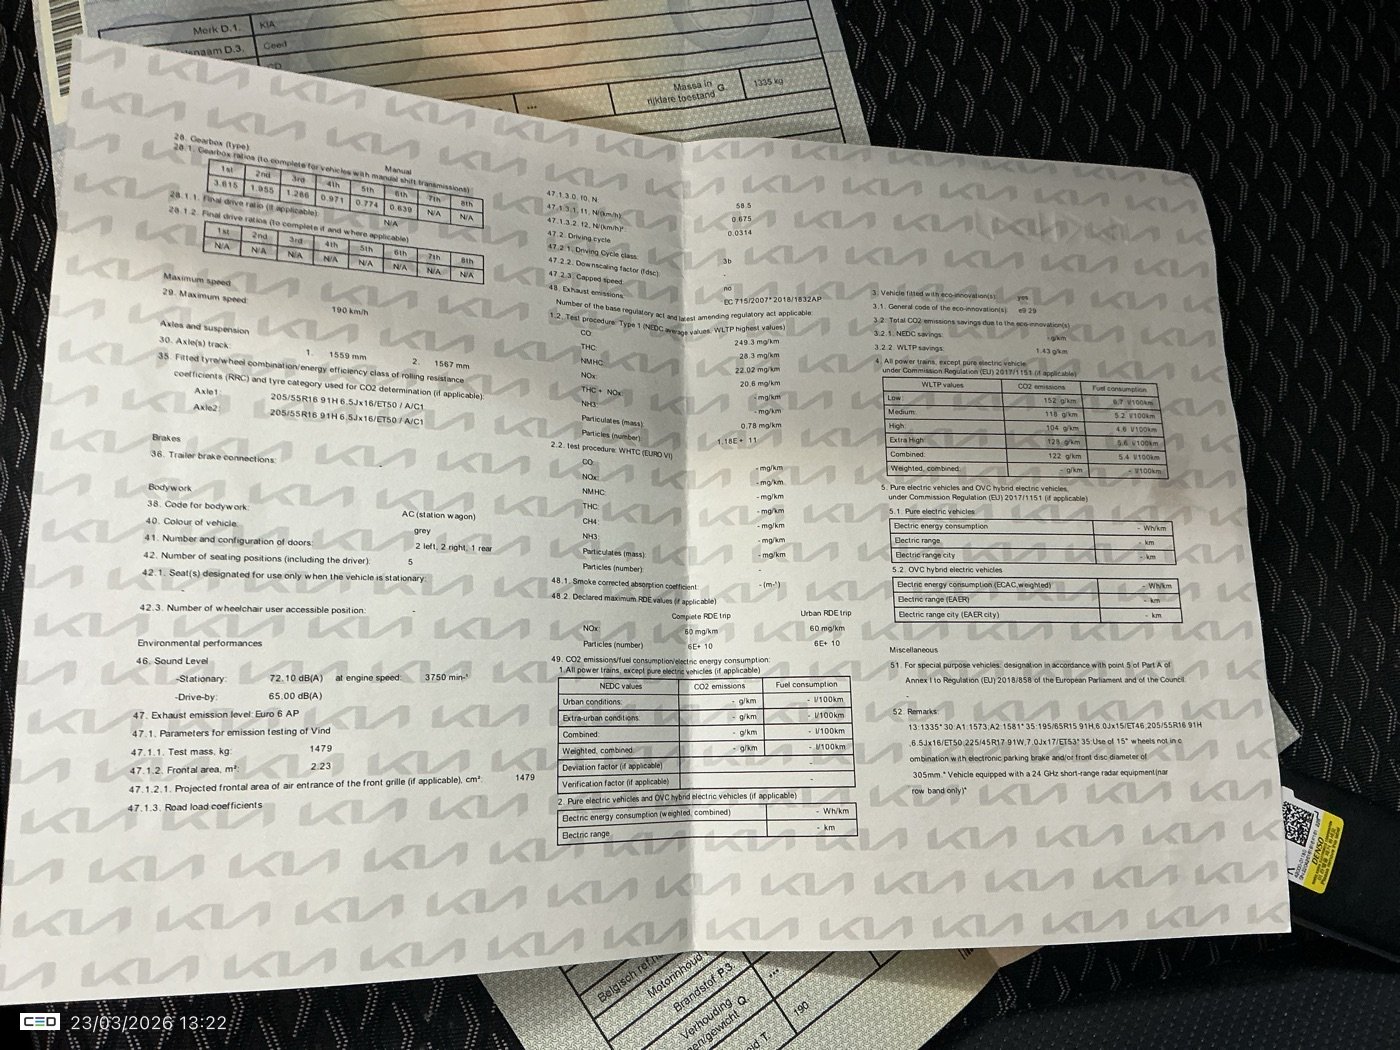 Merk D.1. KIA
D.3. Ceed
Massa in
rijklare toestand G. 1335 kg
...
KIA
28. Gearbox (type): Manual
28.1. Gearbox ratios (to complete for vehicles with manual shift transmissions)
1st 2nd 3rd 4th 5th 6th 7th 8th
3.615 1.955 1.286 0.971 0.774 0.639 N/A N/A
28.1.1. Final drive ratio (if applicable): N/A
28.1.2. Final drive ratios (to complete if and where applicable)
1st 2nd 3rd 4th 5th 6th 7th 8th
N/A N/A N/A N/A N/A N/A N/A N/A
Maximum speed
29. Maximum speed: 190 km/h
Axles and suspension
30. Axle(s) track: 1. 1559 mm 2. 1567 mm
35. Fitted tyre/wheel combination/energy efficiency class of rolling resistance
coefficients (RRC) and tyre category used for CO2 determination (if applicable):
Axle1: 205/55R16 91H 6.5Jx16/ET50 / A/C1
Axle2: 205/55R16 91H 6.5Jx16/ET50 / A/C1
Brakes
36. Trailer brake connections: -
Bodywork
38. Code for bodywork: AC (station wagon)
40. Colour of vehicle: grey
41. Number and configuration of doors: 2 left, 2 right, 1 rear
42. Number of seating positions (including the driver): 5
42.1. Seat(s) designated for use only when the vehicle is stationary:
-
42.3. Number of wheelchair user accessible position: -
Environmental performances
46. Sound Level
-Stationary: 72.10 dB(A) at engine speed: 3750 min-¹
-Drive-by: 65.00 dB(A)
47. Exhaust emission level: Euro 6 AP
47.1. Parameters for emission testing of Vind
47.1.1. Test mass, kg: 1479
47.1.2. Frontal area, m²: 2.23
47.1.2.1. Projected frontal area of air entrance of the front grille (if applicable), cm²: 1479
47.1.3. Road load coefficients
47.1.3.0. f0, N 58.5
47.1.3.1. f1, N/(km/h) 0.675
47.1.3.2. f2, N/(km/h)² 0.0314
47.2. Driving cycle
47.2.1. Driving Cycle class: 3b
47.2.2. Downscaling factor (fdsc): -
47.2.3. Capped speed no
48. Exhaust emissions:
Number of the base regulatory act and latest amending regulatory act applicable: EC 715/2007*2018/1832AP
1.2. Test procedure: Type 1 (NEDC average values, WLTP highest values)
CO: 249.3 mg/km
THC: 28.3 mg/km
NMHC: 22.02 mg/km
NOx: 20.6 mg/km
THC + NOx: - mg/km
NH3: - mg/km
Particulates (mass): 0.78 mg/km
Particles (number): 1.18E+ 11
2.2. test procedure: WHTC (EURO VI)
CO: - mg/km
NOx: - mg/km
NMHC: - mg/km
THC: - mg/km
CH4: - mg/km
NH3: - mg/km
Particulates (mass): - mg/km
Particles (number): -
48.1. Smoke corrected absorption coefficient: - (m-¹)
48.2. Declared maximum RDE values (if applicable)
Complete RDE trip Urban RDE trip
NOx: 60 mg/km 60 mg/km
Particles (number) 6E+ 10 6E+ 10
49. CO2 emissions/fuel consumption/electric energy consumption:
1.All power trains, except pure electric vehicles (if applicable)
NEDC values CO2 emissions Fuel consumption
Urban conditions: - g/km - l/100km
Extra-urban conditions: - g/km - l/100km
Combined: - g/km - l/100km
Weighted, combined: - g/km - l/100km
Deviation factor (if applicable) -
Verification factor (if applicable) -
2. Pure electric vehicles and OVC hybrid electric vehicles (if applicable)
Electric energy consumption (weighted, combined) - Wh/km
Electric range - km
3. Vehicle fitted with eco-innovation(s): yes
3.1. General code of the eco-innovation(s): e9 29
3.2. Total CO2 emissions savings due to the eco-innovation(s)
3.2.1. NEDC savings: - g/km
3.2.2. WLTP savings: 1.43 g/km
4. All power trains, except pure electric vehicle,
under Commission Regulation (EU) 2017/1151 (if applicable)
WLTP values CO2 emissions Fuel consumption
Low: 152 g/km 6.7 l/100km
Medium: 118 g/km 5.2 l/100km
High: 104 g/km 4.6 l/100km
Extra High: 128 g/km 5.6 l/100km
Combined: 122 g/km 5.4 l/100km
Weighted, combined: - g/km - l/100km
5. Pure electric vehicles and OVC hybrid electric vehicles,
under Commission Regulation (EU) 2017/1151 (if applicable)
5.1. Pure electric vehicles
Electric energy consumption - Wh/km
Electric range - km
Electric range city - km
5.2. OVC hybrid electric vehicles
Electric energy consumption (ECAC,weighted) - Wh/km
Electric range (EAER) - km
Electric range city (EAER city) - km
Miscellaneous
51. For special purpose vehicles: designation in accordance with point 5 of Part A of
Annex I to Regulation (EU) 2018/858 of the European Parliament and of the Council:
-
52. Remarks:
13:1335*30:A1:1573,A2:1581*35:195/65R15 91H,6.0Jx15/ET46,205/55R16 91H
,6.5Jx16/ET50,225/45R17 91W,7.0Jx17/ET53*35:Use of 15" wheels not in c
ombination with electronic parking brake and/or front disc diameter of
305mm.* Vehicle equipped with a 24 GHz short-range radar equipment(nar
row band only)*
DENSO
Belgisch ref.
Motorinhoud
Brandstof P.3. ...
Verhouding
Q.
T. 190
CED 23/03/2026 13:22